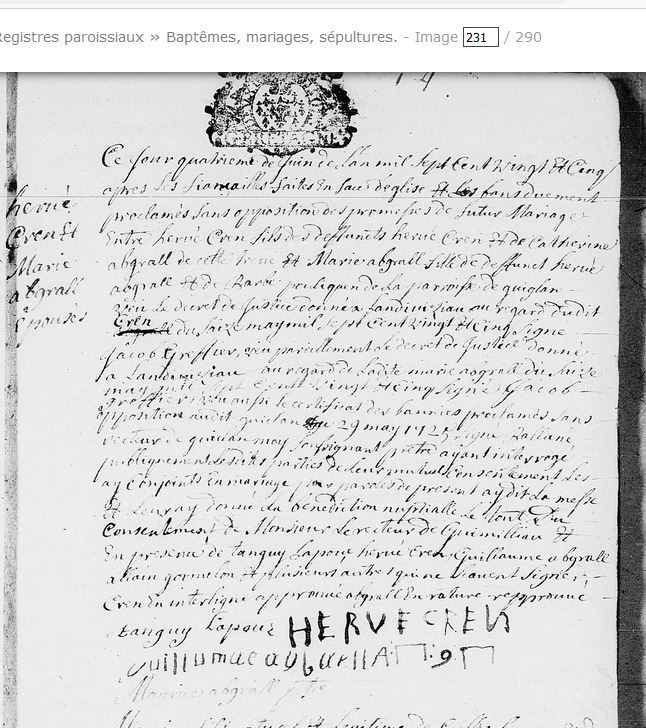 Registres paroissiaux » Baptêmes, mariages, sépultures. - Image 231 / 290
Ce jour quatrieme de juin de L'an mil sept Cent vingt Et Cinq
apres les fiançailles faites En face d'eglise Et les bans duement
proclamés sans opposition des promesses de futur Mariage
Entre hervé Cren fils des deffunts hervé Cren Et de Catherine
abgrall de cette treve Et Marie abgrall fille de deffunct hervé
abgrall Et de Barbe pouliquen de la paroisse de guiclan
veu Le decret de Justice donné a Landiviziau au regard dudit
Cren du saize may mil sept Cent vingt Et Cinq signé
Jacob Greffier, veu pareillement Le decret de Justice donné
a Landiviziau au regard de Ladite marie abgrall du saize
may mil sept Cent vingt Et Cinq signé Jacob
greffier veu aussi le certificat des bannies proclamés sans
opposition audit guiclan 29 may 1725 signé
recteur de guiclan moy soussignant prêtre ayant interrogé
publiquement Lesdites parties de Leur mutuel Consentement Les
ay Conjoints En mariage par paroles de present ay dit La messe
Et Leur ay donné La bénédiction nuptialle Le tout Du
Consentement de Monsieur Le recteur de Guimilliau Et
En presence de tanguy Lapouz hervé Cren, Guillaume abgrall
allain gormelon Et plusieurs autres qui ne scavent signer
Cren En interligne approuvé abgrall En rature
tanguy Lapouz HERVE CREN
Maurice abgrall ptre
hervé
Cren Et
Marie
abgrall
Epouses